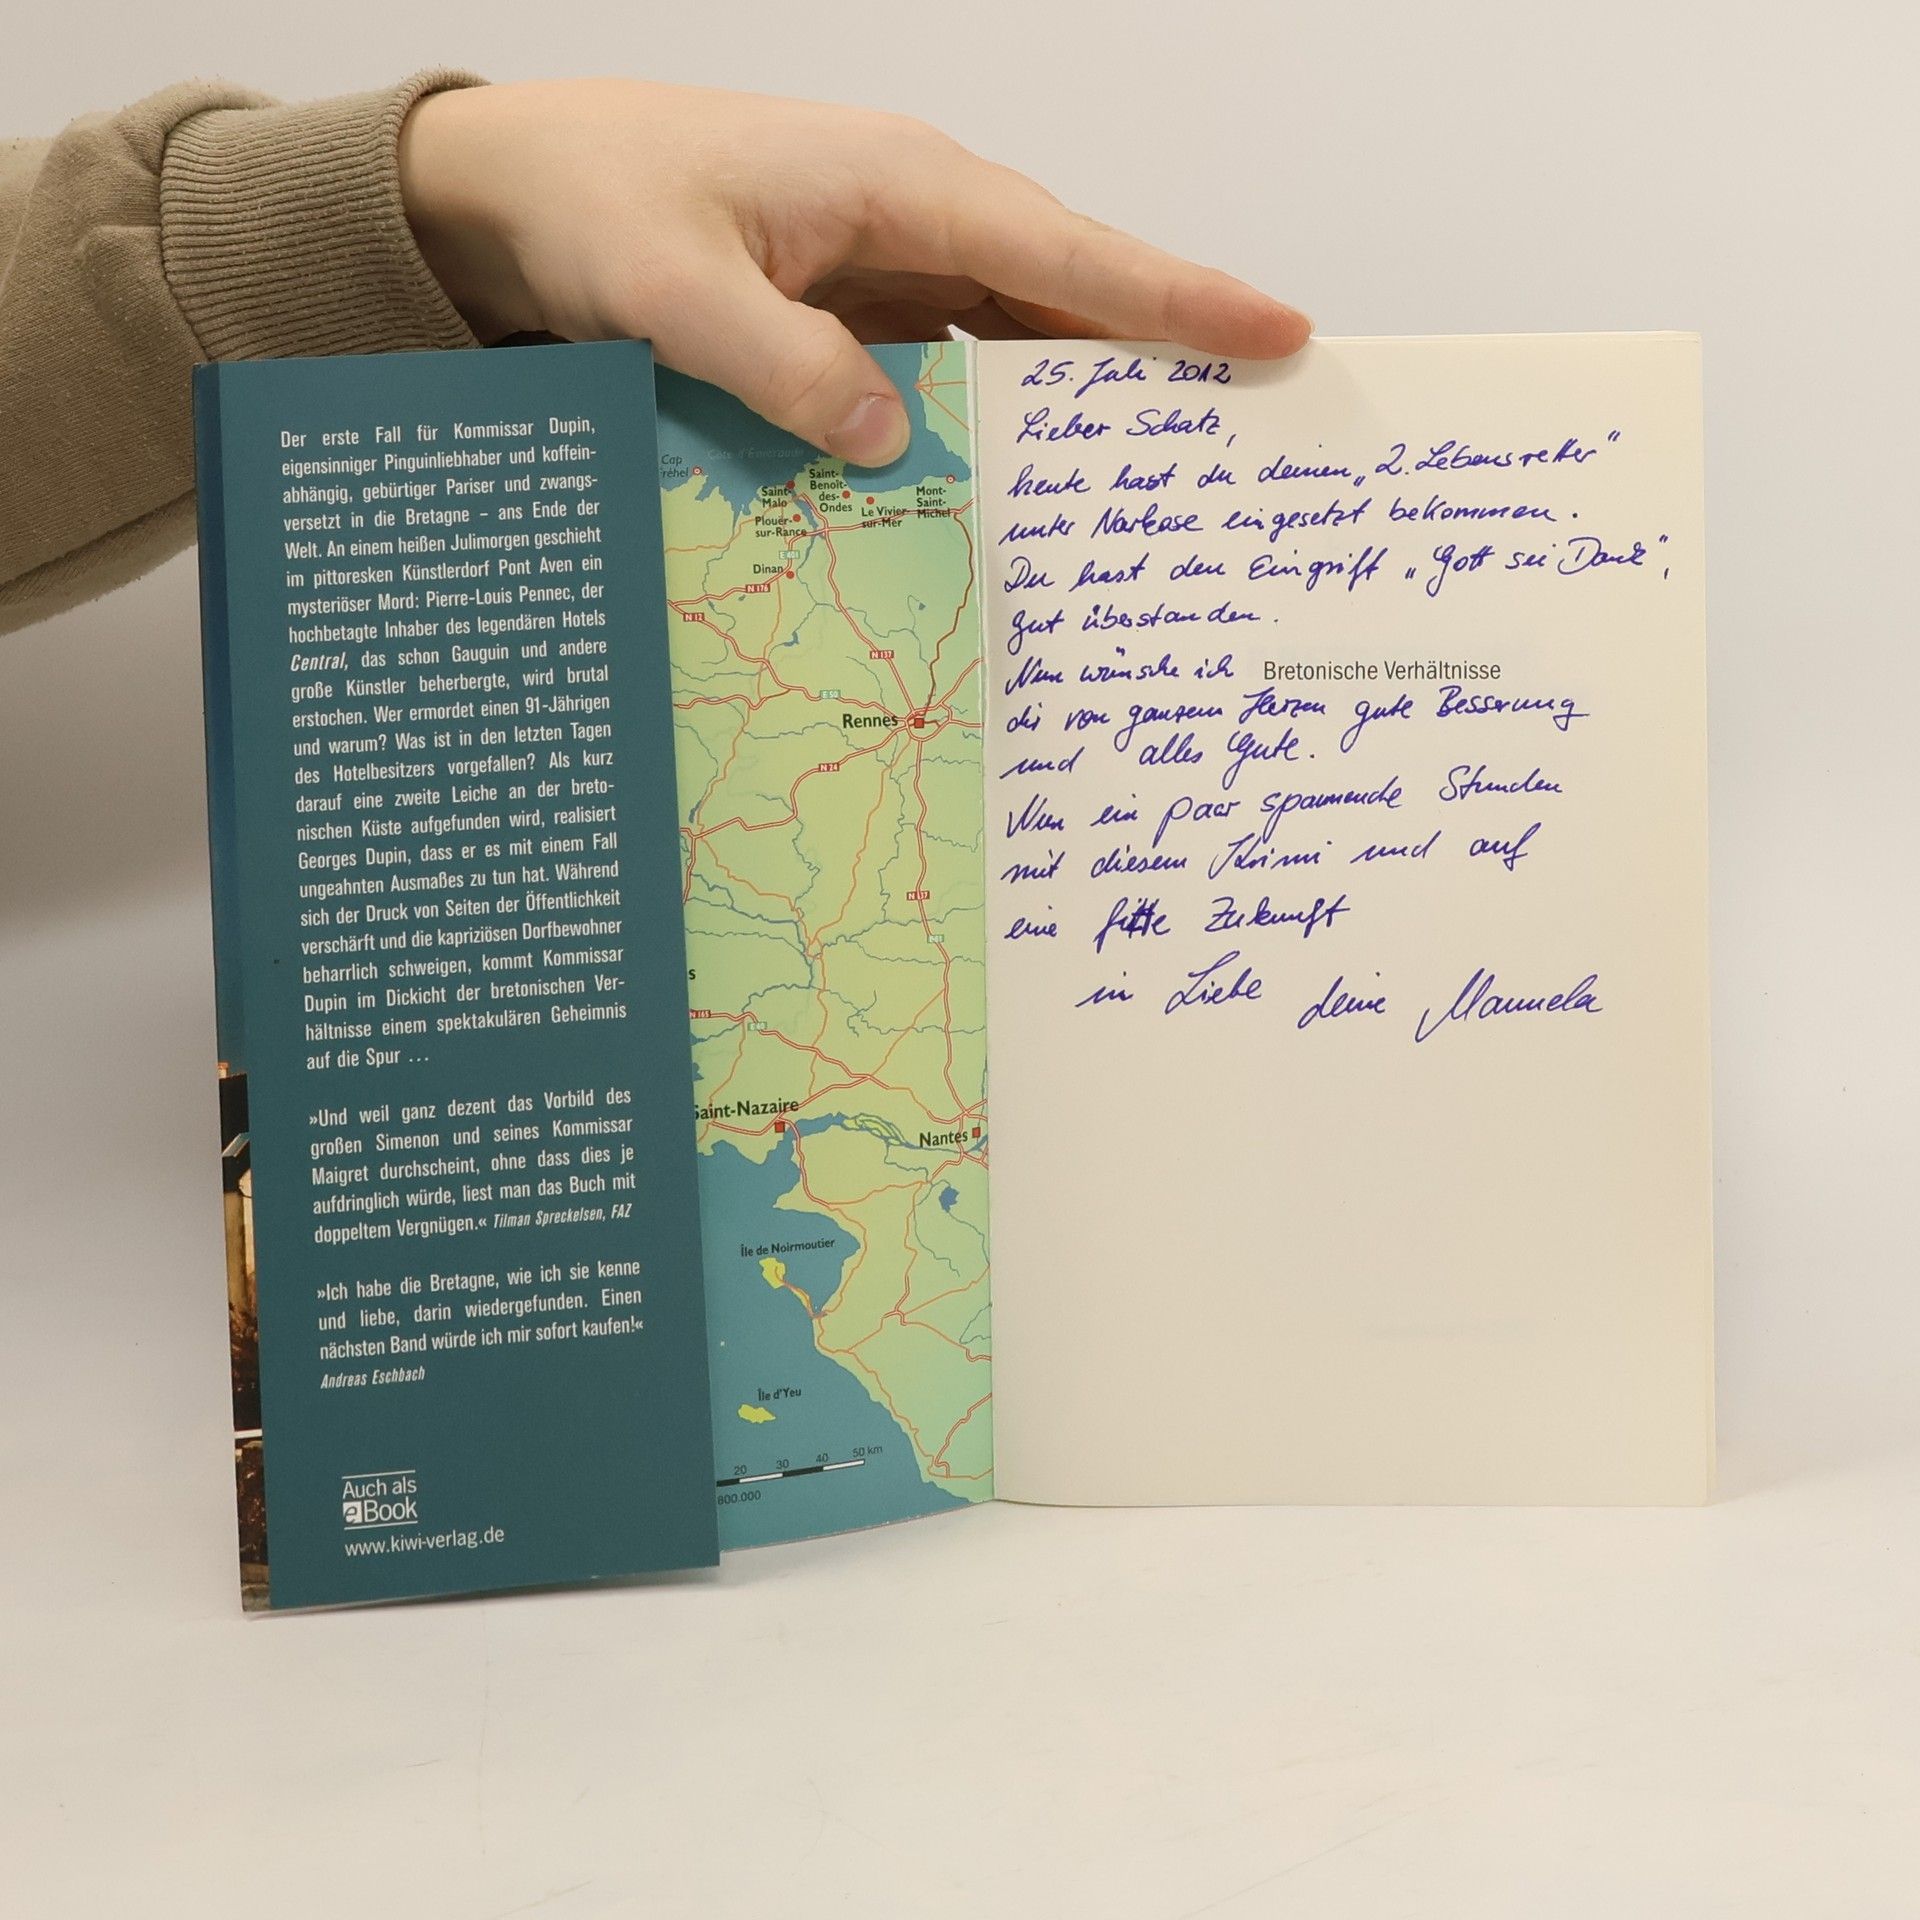 Der erste Fall für Kommissar Dupin,
eigensinniger Pinguinliebhaber und koffein-
abhängig, gebürtiger Pariser und zwangs-
versetzt in die Bretagne – ans Ende der
Welt. An einem heißen Julimorgen geschieht
im pittoresken Künstlerdorf Pont Aven ein
mysteriöser Mord: Pierre-Louis Pennec, der
hochbetagte Inhaber des legendären Hotels
Central, das schon Gauguin und andere
große Künstler beherbergte, wird brutal
erstochen. Wer ermordet einen 91-Jährigen
und warum? Was ist in den letzten Tagen
des Hotelbesitzers vorgefallen? Als kurz
darauf eine zweite Leiche an der breto-
nischen Küste aufgefunden wird, realisiert
Georges Dupin, dass er es mit einem Fall
ungeahnten Ausmaßes zu tun hat. Während
sich der Druck von Seiten der Öffentlichkeit
verschärft und die kapriziösen Dorfbewohner
beharrlich schweigen, kommt Kommissar
Dupin im Dickicht der bretonischen Ver-
hältnisse einem spektakulären Geheimnis
auf die Spur ...
»Und weil ganz dezent das Vorbild des
großen Simenon und seines Kommissar
Maigret durchscheint, ohne dass dies je
aufdringlich würde, liest man das Buch mit
doppeltem Vergnügen.« Tilman Spreckelsen, FAZ
»Ich habe die Bretagne, wie ich sie kenne
und liebe, darin wiedergefunden. Einen
nächsten Band würde ich mir sofort kaufen!«
Andreas Eschbach
Auch als
eBook
www.kiwi-verlag.de
Côte d'Emeraude
Cap
Fréhel
Saint-
Malo
Saint-
Benoît-
des-
Ondes
Le Vivier-
sur-Mer
Mont-
Saint-
Michel
Plouër-
sur-Rance
E 401
Dinan
N 176
N 12
N 137
E 50
Rennes
N 24
N 137
N 165
E 60
Saint-Nazaire
Nantes
Île de Noirmoutier
Île d'Yeu
20 30 40 50 km
800.000
25. Juli 2012
Lieber Schatz,
heute hast du deinen „2. Lebensretter“
unter Narkose eingesetzt bekommen.
Du hast den Eingriff „Gott sei Dank“,
gut überstanden.
Nun wünsche ich
Bretonische Verhältnisse
dir von ganzem Herzen gute Besserung
und alles Gute.
Nun ein paar spannende Stunden
mit diesem Krimi und auf
eine fitte Zukunft
in Liebe deine Manuela